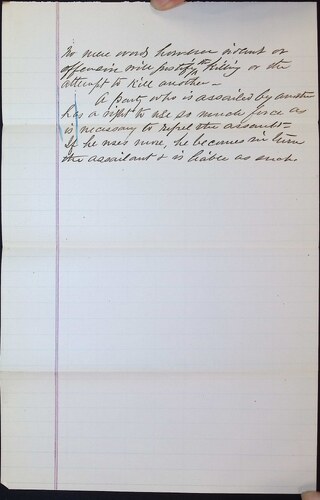 No mere words however violent or
offensive will justify the killing or the
attempt to kill another —
A party who is assailed by another
has a right to use so much force as
is necessary to repel the assault —
If he uses more, he becomes in turn
the assailant & is liable as such.